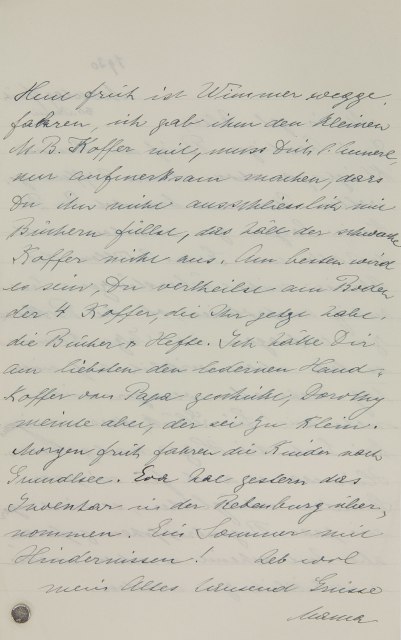 Heut früh ist Wimmer wegge-
fahren, ich gab ihm den kleinen
M. B. Koffer mit, muss Dich, l. Annerl,
nur aufmerksam machen, dass
Du ihn nicht ausschliesslich mit
Büchern füllst, das hält der schwache
Koffer nicht aus. Am besten wird
es sein, Du vertheilst am Boden
der 4 Koffer, die Ihr jetzt habt.
die Bücher & Hefte. Ich hätte Dir
am liebsten den ledernen Hand-
Koffer von Papa geschickt, Dorothy
meinte aber, der sei zu klein.
Morgen früh fahren die Kinder nach
Grundlsee. Eva hat gestern das
Inventar in der Rebenburg über-
nommen. Ein Sommer mit
Hindernissen! Leb wol
mein Altes tausend Grüsse
Mama